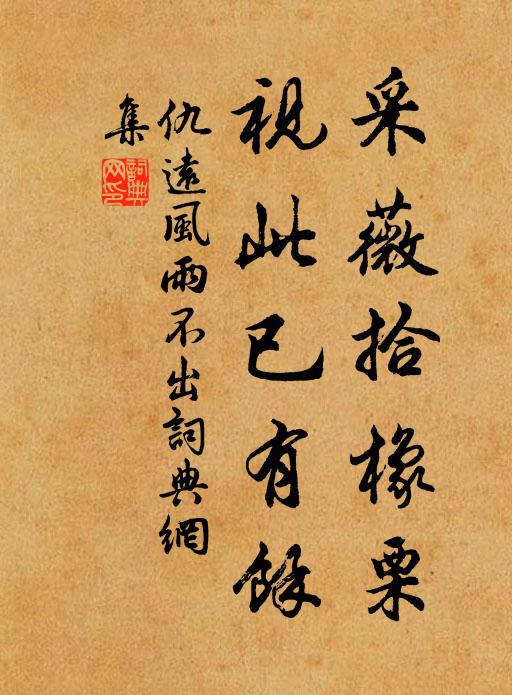 采薇拾橡栗
視此已有餘
仇遠風雨不出詞典網
集
詞典
网印